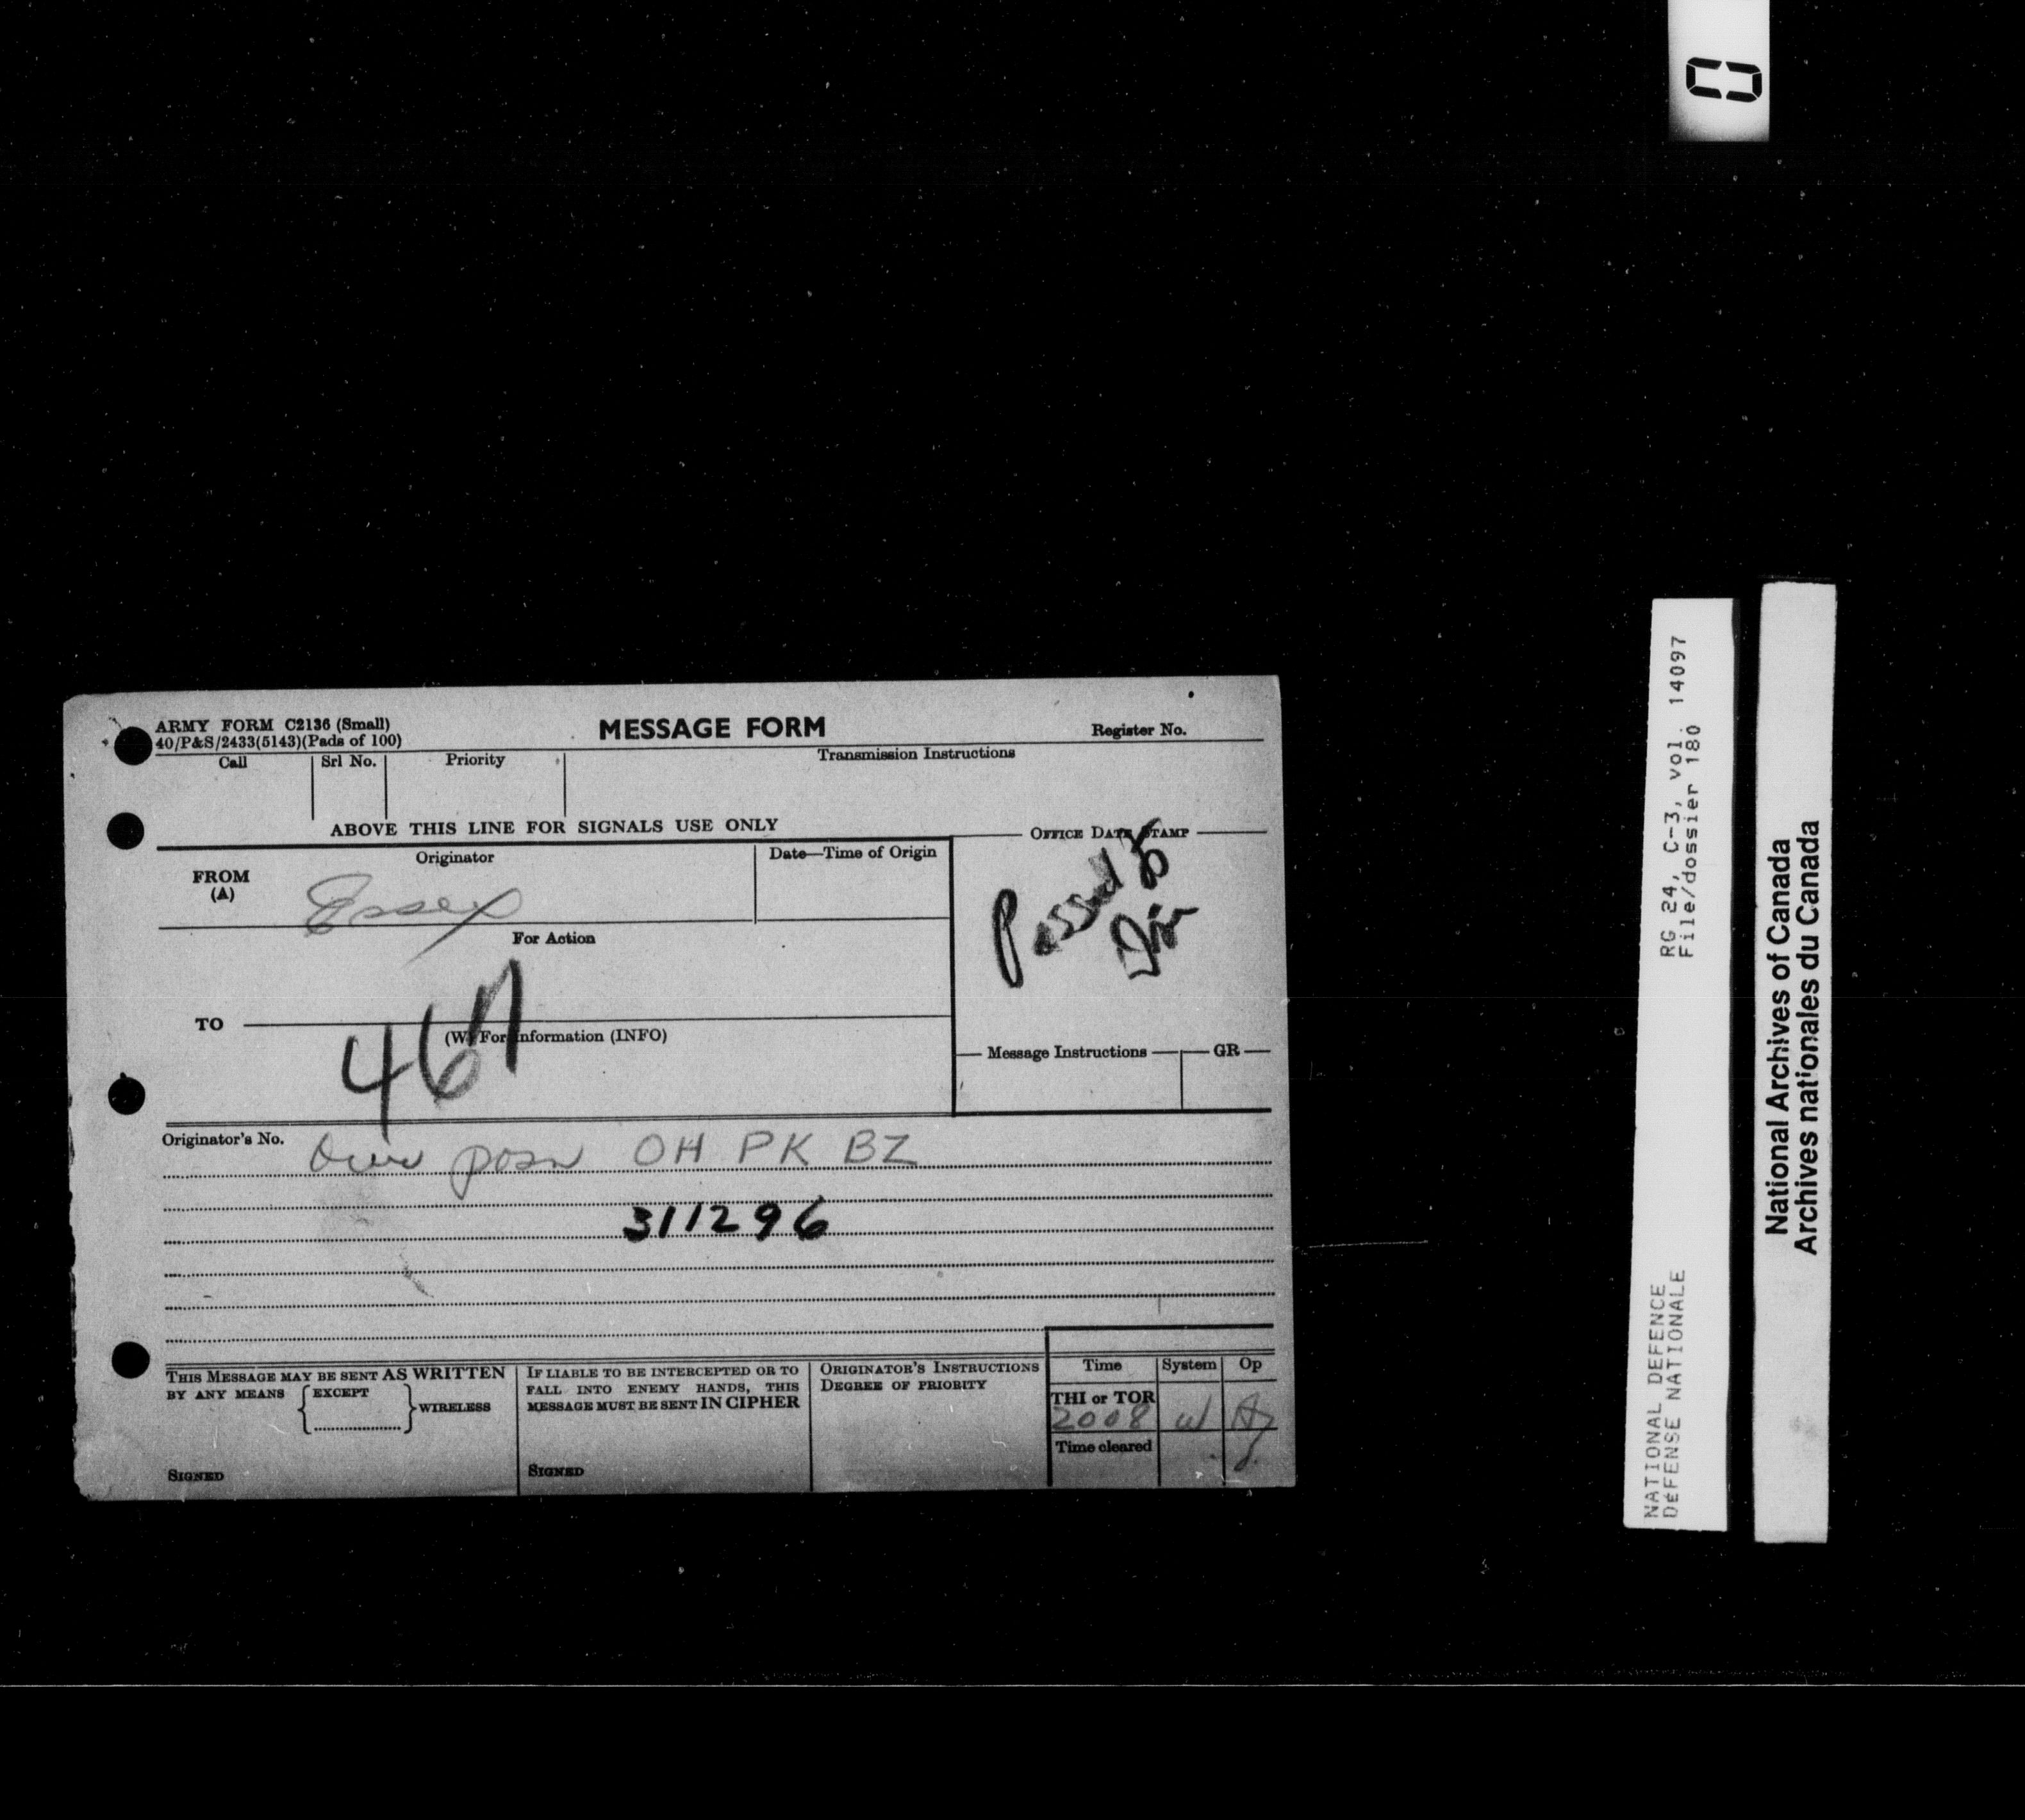 ARMY FORM C2136 (Small)
40/P&S/2433(5143)(Pads of 100)
MESSAGE FORM
Register No.
Call
Srl No.
Priority
Transmission Instructions
ABOVE THIS LINE FOR SIGNALS USE ONLY
OFFICE DATE STAMP
FROM
(A)
Originator
Essex
Date—Time of Origin
Passed to
Div
For Action
46A
TO
(W) For Information (INFO)
Message Instructions
GR
Originator's No.
Our posn OH PK BZ
311296
THIS MESSAGE MAY BE SENT AS WRITTEN
BY ANY MEANS { EXCEPT } WIRELESS
SIGNED
IF LIABLE TO BE INTERCEPTED OR TO
FALL INTO ENEMY HANDS, THIS
MESSAGE MUST BE SENT IN CIPHER
SIGNED
ORIGINATOR'S INSTRUCTIONS
DEGREE OF PRIORITY
Time
System
Op
THI or TOR
2008
W
Time cleared
RG 24, C-3, vol. 14097
File/dossier 180
NATIONAL DEFENCE
DÉFENSE NATIONALE
National Archives of Canada
Archives nationales du Canada